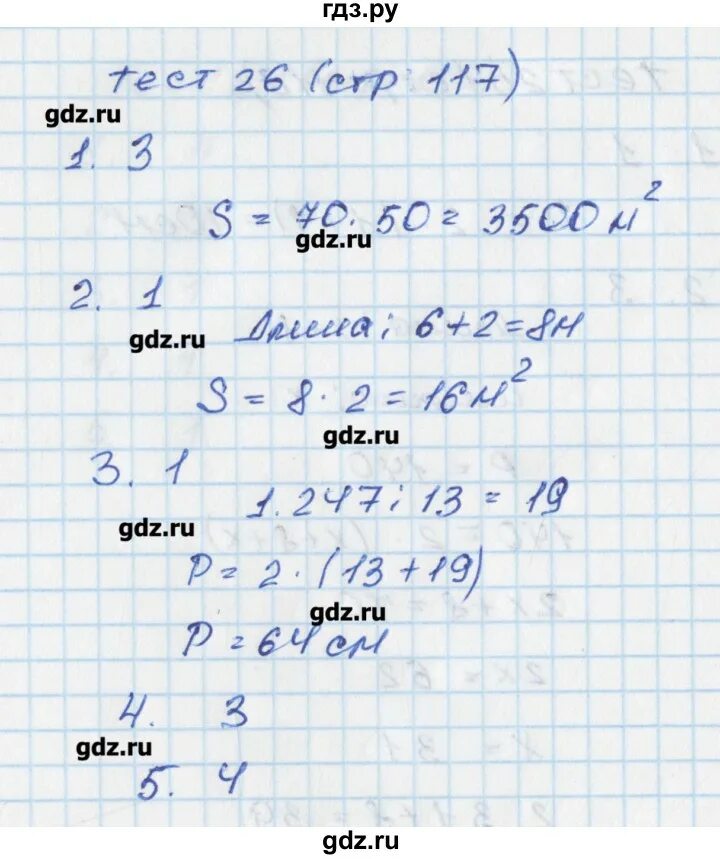 гдз.ру
тест 26 (стр. 117)
gdz.ru
1. 3
S = 70 · 50 = 3500 м²
gdz.ru
2. 1
Длина: 6+2=8м
gdz.ru
S = 8 · 2 = 16 м²
gdz.ru
3. 1
1. 247 : 13 = 19
gdz.ru
P = 2 · (13 + 19)
gdz.ru
P = 64 см
4. 3
gdz.ru
5. 4
gdz.ru